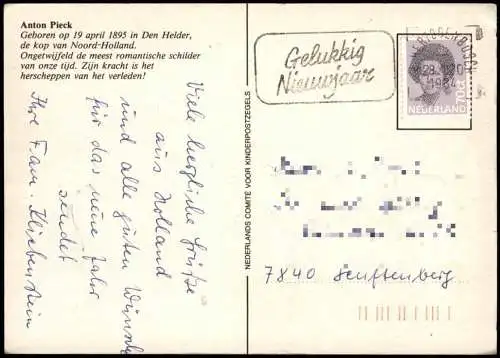 Anton Pieck
Geboren op 19 april 1895 in Den Helder,
de kop van Noord-Holland.
Ongetwijfeld de meest romantische schilder
van onze tijd. Zijn kracht is het
herscheppen van het verleden!
Viele herzliche Grüße
aus Holland
und alle guten Wünsche
für das neue Jahr
sendet
Ihre Fam. Kliebenstein
NEDERLANDS COMITÉ VOOR KINDERPOSTZEGELS
Gelukkig
Nieuwjaar
1984
NEDERLAND
7840 Senftenberg